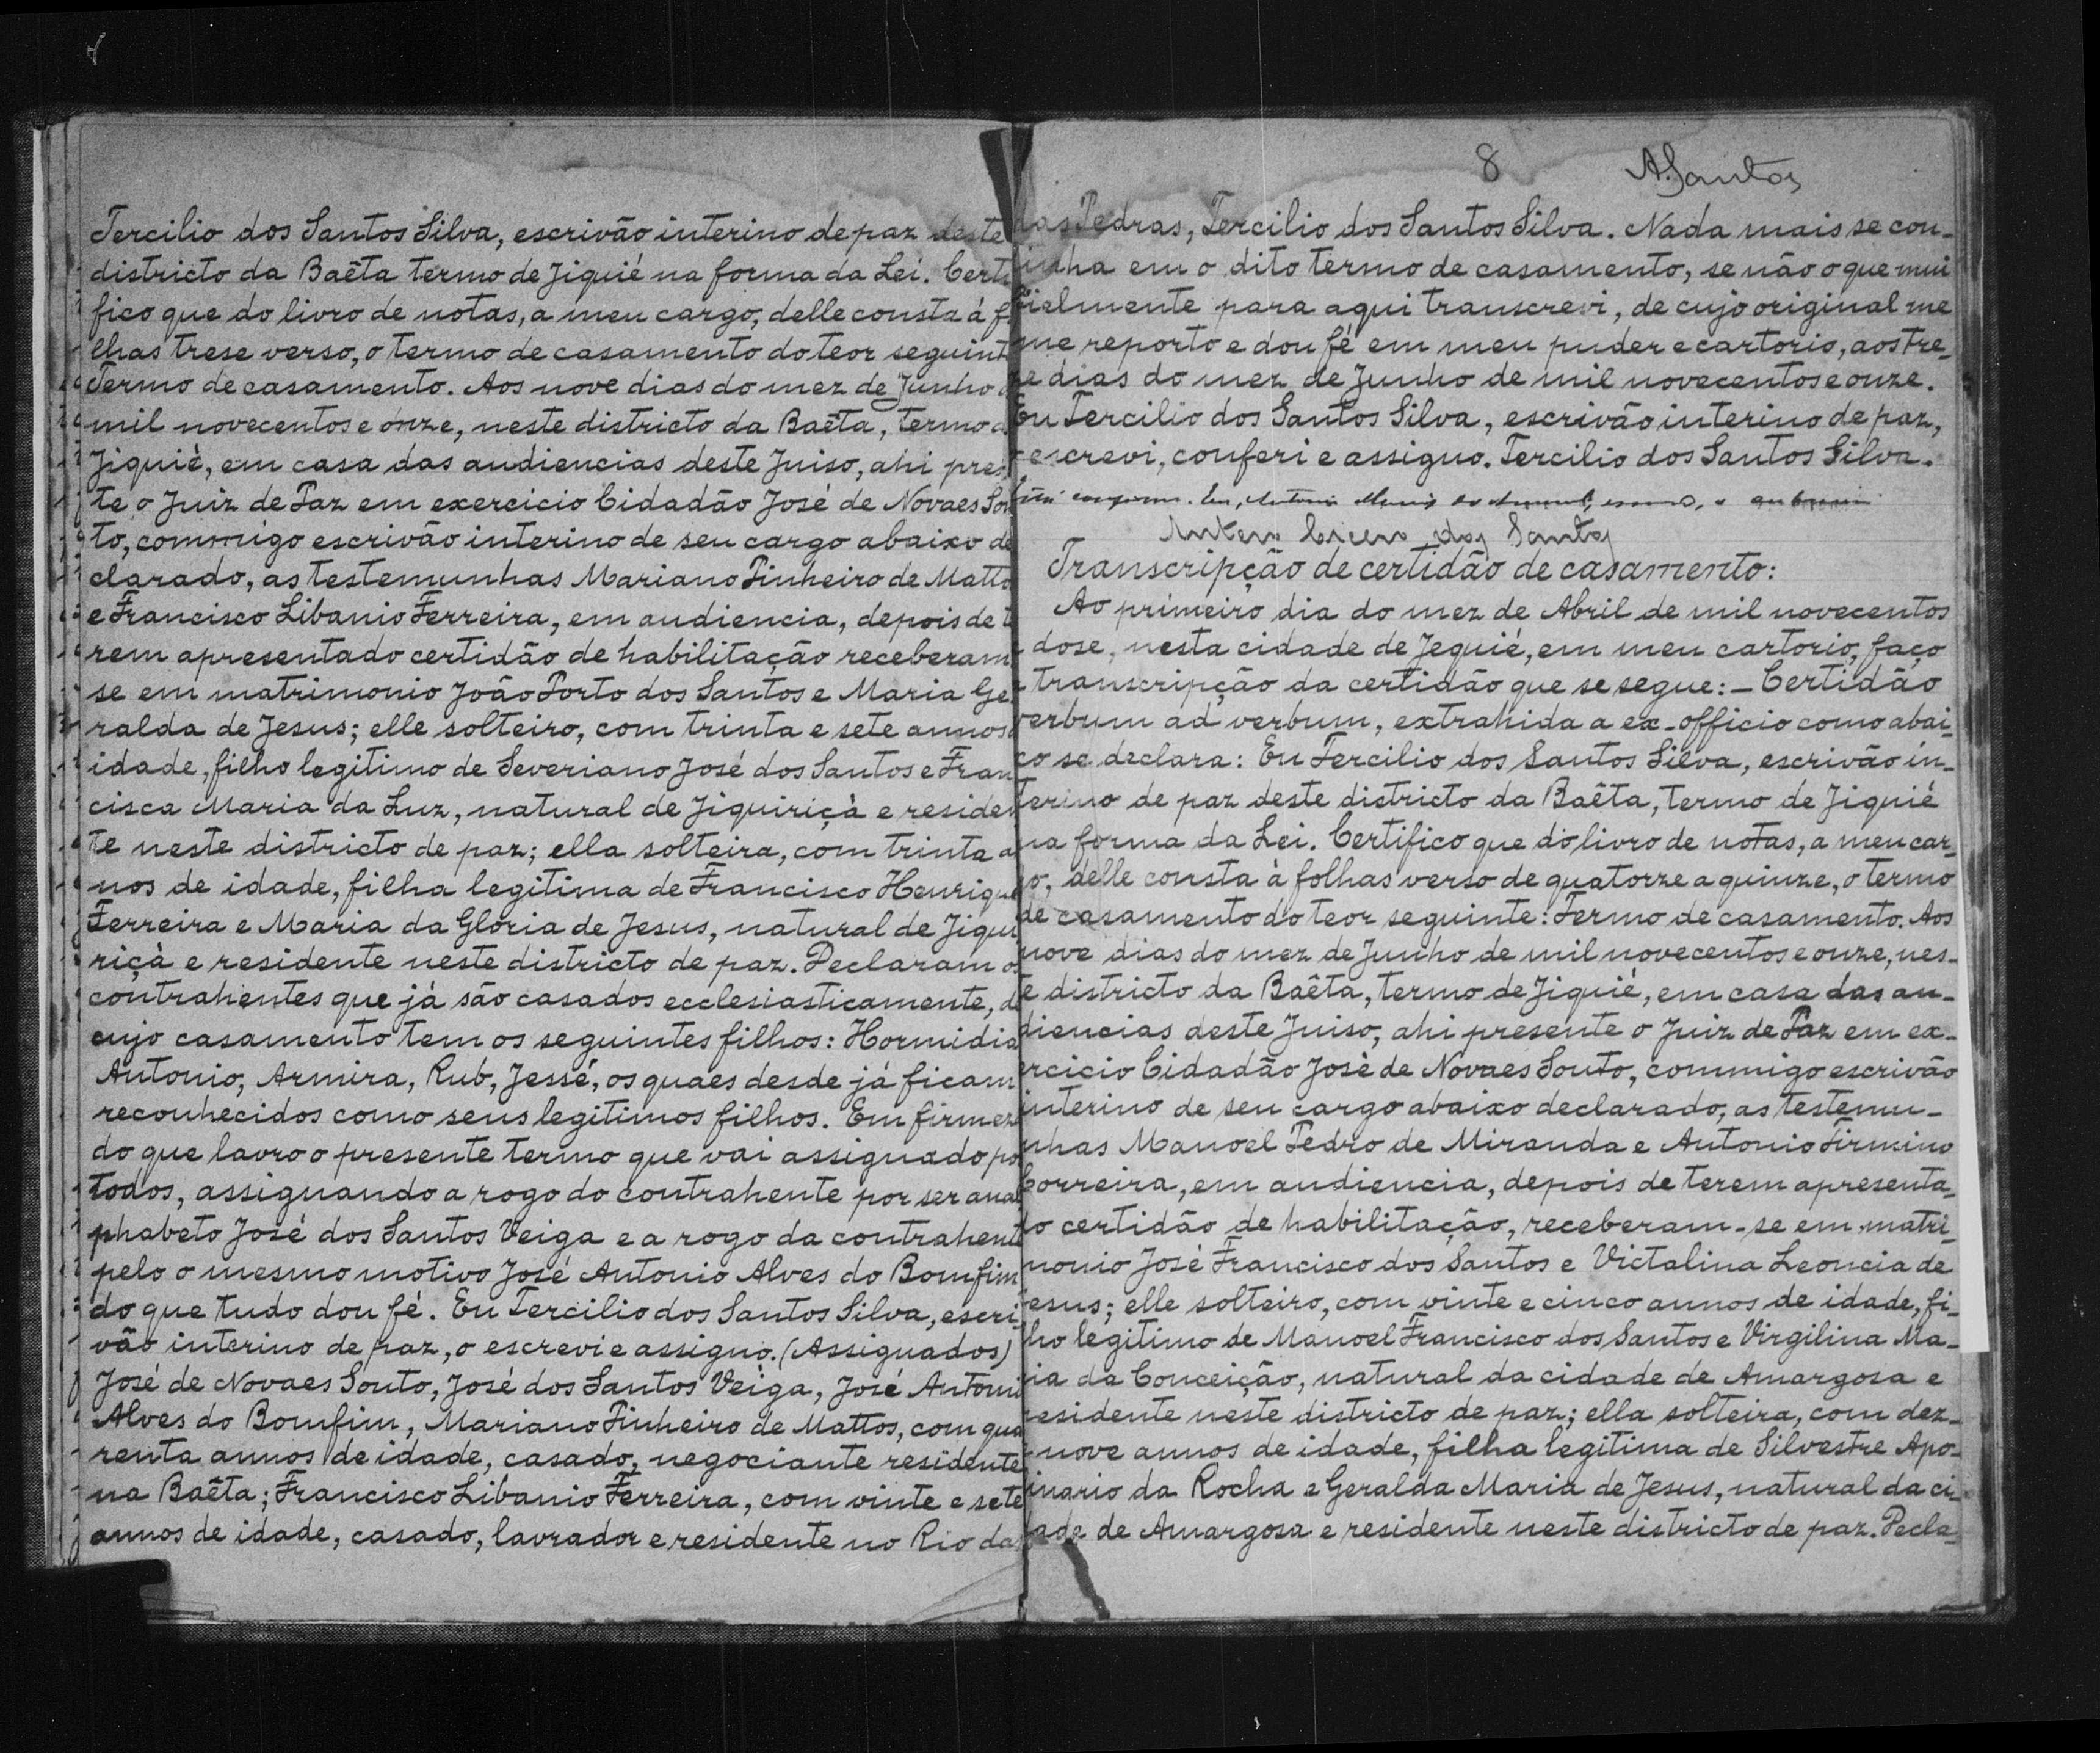 Tercilio dos Santos Silva, escrivão interino de paz deste
districto da Baêta termo de Jiquié na forma da Lei. Certi
fico que do livro de notas, a meu cargo, delle consta á f
lhas trese verso, o termo de casamento do teor seguint
Termo de casamento. Aos nove dias do mez de Junho d
mil novecentos e onze, neste districto da Baêta, termo d
Jiquié, em casa das audiencias deste Juiso, ahi pres
te o Juiz de Paz em exercicio Cidadão José de Novaes Sou
to, commigo escrivão interino de seu cargo abaixo de
clarado, as testemunhas Mariano Pinheiro de Matto
e Francisco Libanio Ferreira, em audiencia, depois de t
rem apresentado certidão de habilitação receberam
se em matrimonio João Porto dos Santos e Maria Ge
ralda de Jesus; elle solteiro, com trinta e sete annos
idade, filho legitimo de Severiano José dos Santos e Fran
cisca Maria da Luz, natural de Jiquiriçà e residen
te neste districto de paz; ella solteira, com trinta a
nos de idade, filha legitima de Francisco Henrique
Ferreira e Maria da Gloria de Jesus, natural de Jiqui
riçà e residente neste districto de paz. Declaram os
contrahentes que já são casados ecclesiasticamente, de
cujo casamento tem os seguintes filhos: Hormidia
Antonio, Armira, Rub, Jessé, os quaes desde já ficam
reconhecidos como seus legitimos filhos. Em firmeza
do que lavro o presente termo que vai assignado po
todos, assignando a rogo do contrahente por ser anal
phabeto José dos Santos Veiga e a rogo da contrahente
pelo o mesmo motivo José Antonio Alves do Bomfim
do que tudo dou fé. Eu Tercilio dos Santos Silva, escri
vão interino de paz, o escrevi e assigno. (Assignados)
José de Novaes Souto, José dos Santos Veiga, José Antoni
Alves do Bomfim, Mariano Pinheiro de Mattos, com qua
renta annos de idade, casado, negociante residente
na Baêta; Francisco Libanio Ferreira, com vinte e sete
annos de idade, casado, lavrador e residente no Rio da
8 A. Santos
das Pedras, Tercilio dos Santos Silva. Nada mais se con-
tinha em o dito termo de casamento, se não o que mui
fielmente para aqui transcrevi, de cujo original me
me reporto e dou fé em meu puder e cartorio, aos tre-
ze dias do mez de Junho de mil novecentos e onze.
Eu Tercilio dos Santos Silva, escrivão interino de paz,
escrevi, conferi e assigno. Tercilio dos Santos Silva.
Eu, Antonio
dos Santos
Transcripção de certidão de casamento:
Ao primeiro dia do mez de Abril de mil novecentos
dose, nesta cidade de Jequié, em meu cartorio, faço
transcripção da certidão que se segue: - Certidão
verbum ad verbum, extrahida a ex-officio como abai-
xo se declara: Eu Tercilio dos Santos Silva, escrivão in-
terino de paz deste districto da Baêta, termo de Jiquié
na forma da Lei. Certifico que do livro de notas, a meu car-
go, delle consta à folhas verso de quatorze a quinze, o termo
de casamento do teor seguinte: Termo de casamento. Aos
nove dias do mez de Junho de mil novecentos e onze, nes-
te districto da Baêta, termo de Jiquié, em casa das au-
diencias deste Juiso, ahi presente o Juiz de Paz em ex-
ercicio Cidadão José de Novaes Souto, commigo escrivão
interino de seu cargo abaixo declarado, as testemu-
nhas Manoel Pedro de Miranda e Antonio Firmino
Correira, em audiencia, depois de terem apresenta-
do certidão de habilitação, receberam-se em matri-
monio José Francisco dos Santos e Victalina Leoncia de
Jesus; elle solteiro, com vinte e cinco annos de idade, fi-
lho legitimo de Manoel Francisco dos Santos e Virgilina Ma-
ria da Conceição, natural da cidade de Amargosa e
residente neste districto de paz; ella solteira, com dez-
nove annos de idade, filha legitima de Silvestre Apo-
linario da Rocha e Geralda Maria de Jesus, natural da ci-
dade de Amargosa e residente neste districto de paz. Decla-